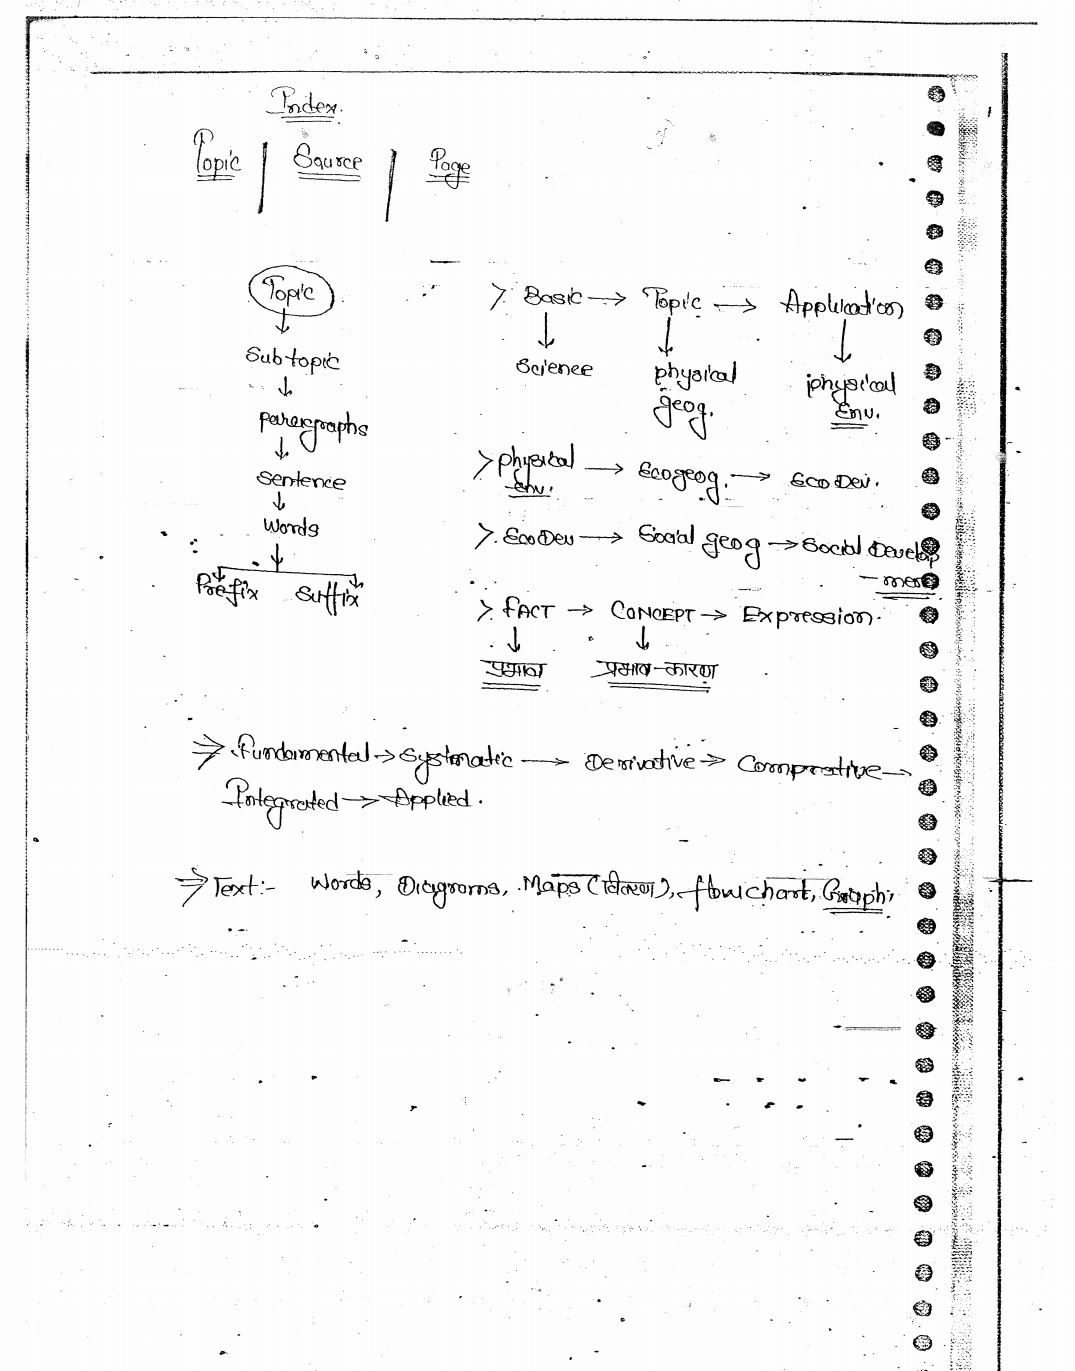 Index.
Topic | Source | Page
Topic
↓
Subtopic
↓
paragraphs
↓
Sentence
↓
Words
↓
Prefix Suffix
> Basic → Topic → Application
↓ ↓ ↓
Science physical physical
geog. Env.
> physical → Ecogeog. → Eco Dev.
Env.
> Eco Dev → Social geog → Social Develop
- ment
> FACT → CONCEPT → Expression.
↓ ↓
प्रभाव प्रभाव-कारण
⇒ Fundamental → Systmatic → Derivative → Comprative →
Integrated → Applied.
⇒ Text:- Words, Diagrams, Maps (वितरण), flowchart, Graph,